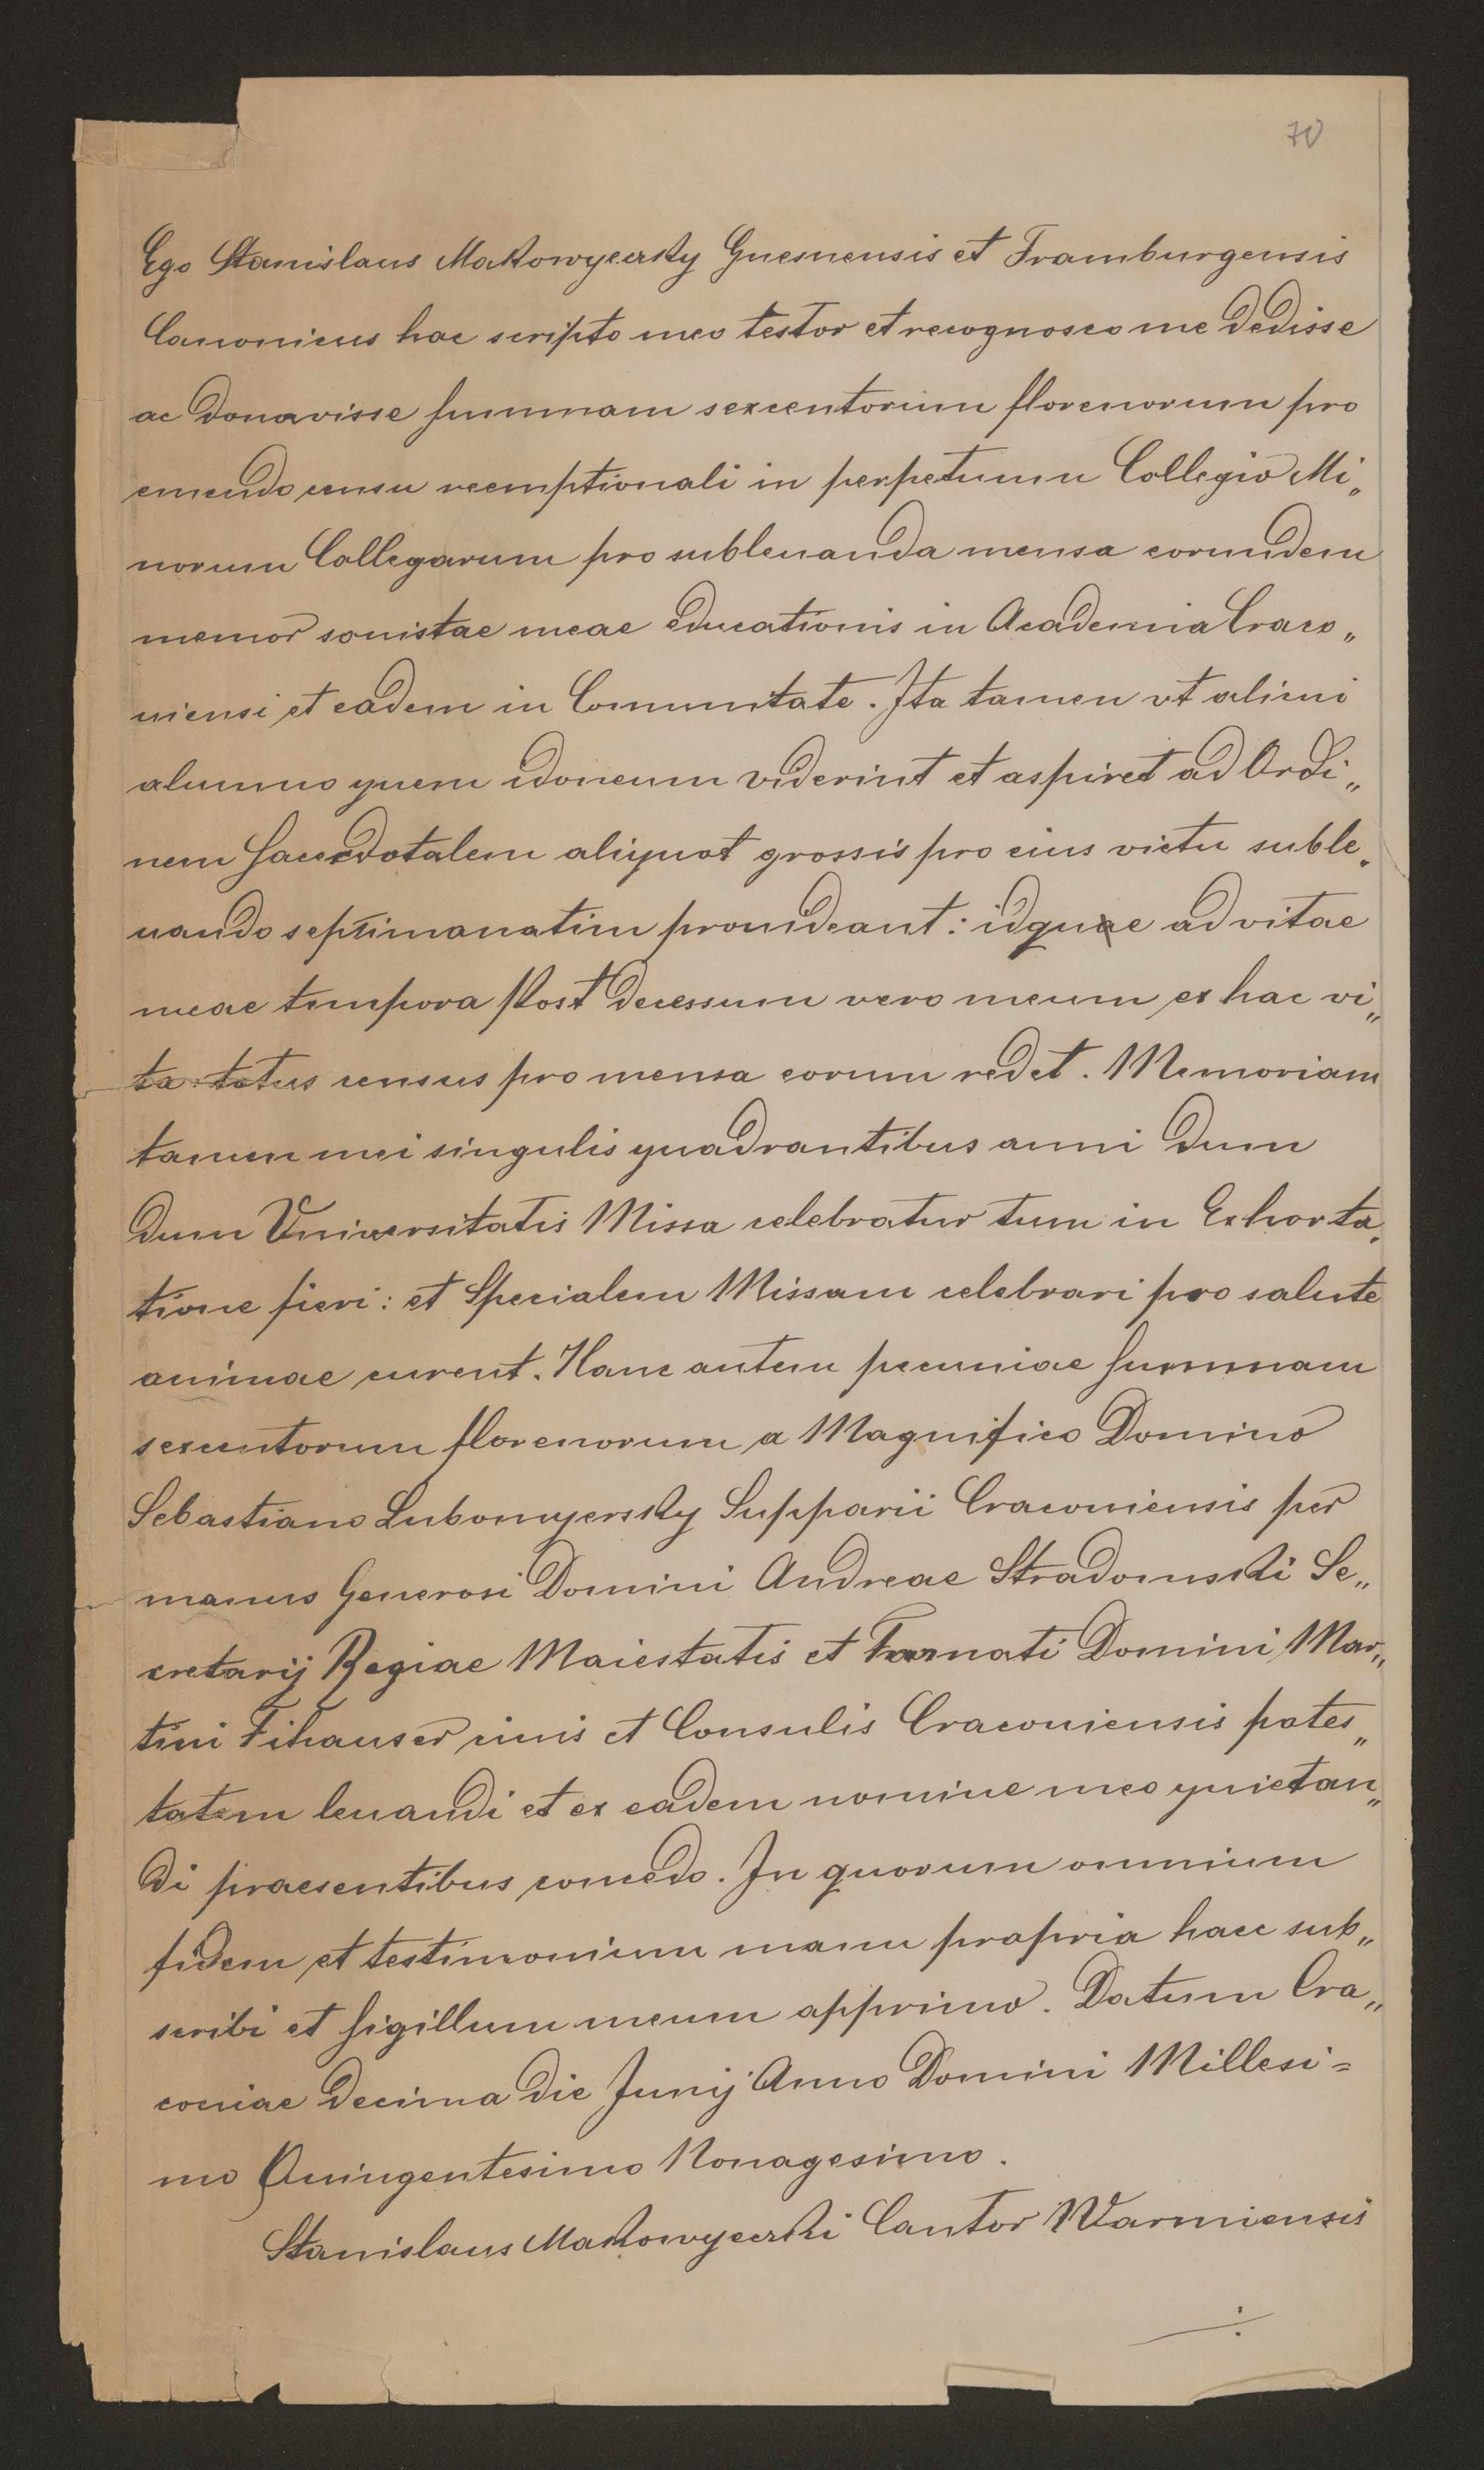 70
Ego Stanislaus Makowyecsky Gnesnensis et Framburgensis
Canonicus hac scripto meo testor et recognosco me dedisse
ac donavisse summam sexcentorum florenorum pro
emendo censu reemptionali in perpetuum Collegio Mi„
norum Collegarum pro subleuanda mensa eorundem
memor sonistae meae educationis in Academia Craco„
uiensi et eadem in Communitate. Ita tamen vt alicui
alumno quem idoneum viderint et aspiret ad Ordi„
nem Sacerdotalem aliquot grossis pro eius victu suble„
uando septimanatim prouideant: idque ad vitae
meae tempora Post decessum vero meum ex hac vi„
ta: totus census pro mensa eorum redet. Memoriam
tamen mei singulis quadrantibus anni dum
dum Universitatis Missa celebratur tum in Exhorta„
tione fieri: et Specialem Missam celebrari pro salute
animae curent. Hanc autem pecuniae summam
sexcentorum florenorum a Magnifico Domino
Sebastiano Lubomyersky Supparii Cracouiensis per
manus Generosi Domini Andreae Stradomski Se„
cretarij Regiae Maiestatis et Famati Domini Mar„
tini Fihauser ciuis et Consulis Cracouiensis potes„
tatem leuandi et ex eadem nomine meo quietan„
di praesentibus concedo. In quorum omnium
fidem et testimonium manu propria haec sub„
scribi et sigillum meum apprimo. Datum Cra„
couiae decima die Junij Anno Domini Millesi=
mo Quingentesimo Nonagesimo.
Stanislaus Makowyecski Cantor Warmiensis